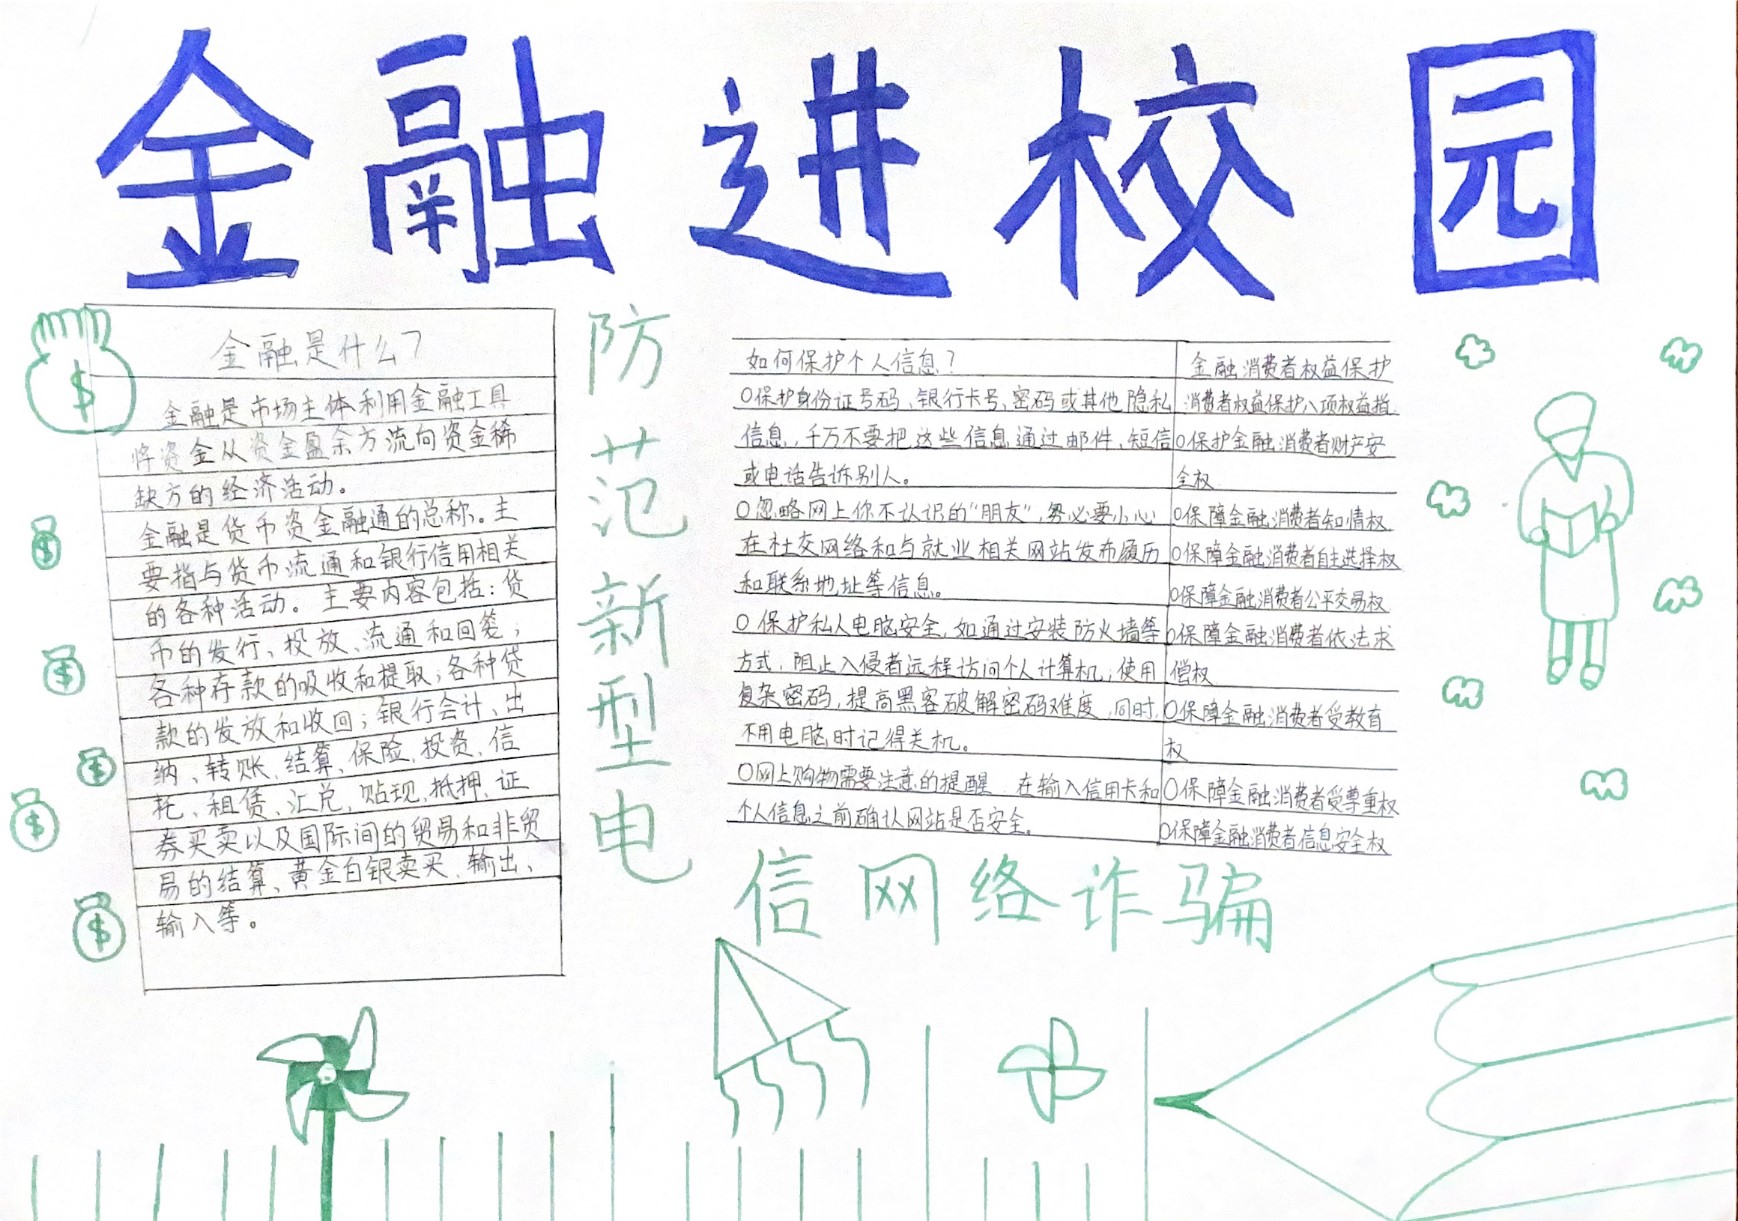 金融进校园
金融是什么？
金融是市场主体利用金融工具
将资金从资金盈余方流向资金稀
缺方的经济活动。
金融是货币资金融通的总称。主
要指与货币流通和银行信用相关
的各种活动。主要内容包括：货
币的发行、投放、流通和回笼；
各种存款的吸收和提取；各种贷
款的发放和收回；银行会计、出
纳、转账、结算、保险、投资、信
托、租赁、汇兑、贴现、抵押、证
券买卖以及国际间的贸易和非贸
易的结算、黄金白银卖买、输出、
输入等。
防范新型电
信网络诈骗
如何保护个人信息？
O保护身份证号码、银行卡号、密码或其他隐私
信息，千万不要把这些信息通过邮件、短信
或电话告诉别人。
O忽略网上你不认识的“朋友”，务必要小心
在社交网络和与就业相关网站发布履历
和联系地址等信息。
O保护私人电脑安全，如通过安装防火墙等
方式，阻止入侵者远程访问个人计算机；使用
复杂密码，提高黑客破解密码难度，同时，
不用电脑时记得关机。
O网上购物需要注意的提醒，在输入信用卡和
个人信息之前确认网站是否安全。
金融消费者权益保护
消费者权益保护八项权益指
O保护金融消费者财产安
全权
O保障金融消费者知情权
O保障金融消费者自主选择权
O保障金融消费者公平交易权
O保障金融消费者依法求
偿权
O保障金融消费者受教育
权
O保障金融消费者受尊重权
O保障金融消费者信息安全权
$
$
$
$
$
$